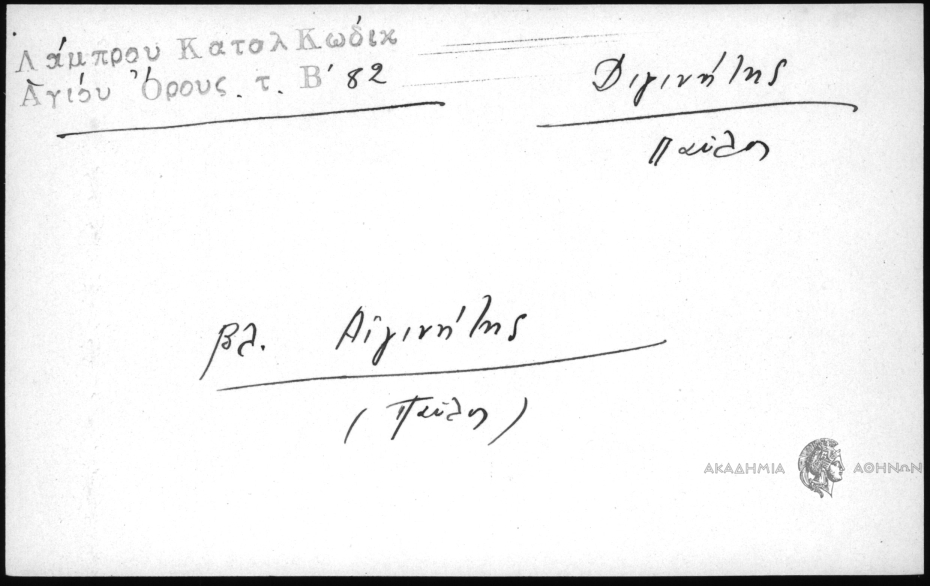 Λάμπρου Καταλ Κωδικ
Ἁγίου Ὄρους. τ. Β' 82
Διγινήτης
Παῦλος
βλ. Αἰγινήτης
(Παῦλος)
ΑΚΑΔΗΜΙΑ ΑΘΗΝΩΝ